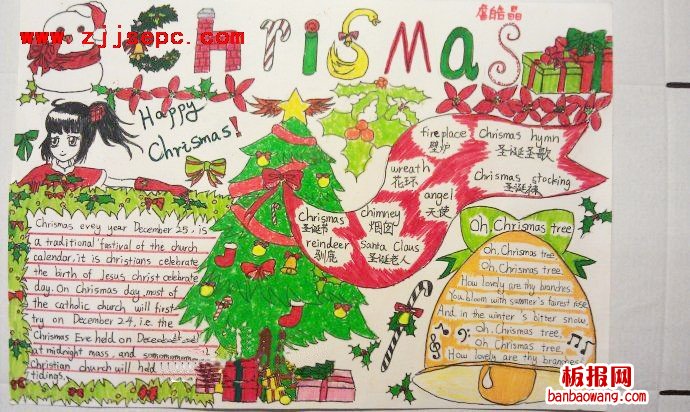 www.zjjsepc.com
ChriSMaS
Happy
Chrismas!
fireplace
壁炉
Chrismas hymn
圣诞圣歌
wreath
花环
Chrismas stocking
圣诞袜
angel
天使
Chrismas
圣诞
chimney
烟囱
reindeer
驯鹿
Santa Claus
圣诞老人
Chrismas evey year December 25, is
a traditional festival of the church
calendar, it is christians celebrate
the birth of Jesus christ celebrate
day. On Chrismas day, most of
the catholic church will first
try on December 24, i.e. the
Chrismas Eve held on December
at midnight mass, and
Christian church will held
tidings.
Oh, Chrismas tree
Oh, Chrismas tree
Oh, Chrismas tree,
How lovely are thy branches.
You bloom with summer's fairest rise
And in the winter's bitter snow,
Oh, Chrismas tree,
Oh, Chrismas tree,
How lovely are thy branches
板报网
banbaowang.com